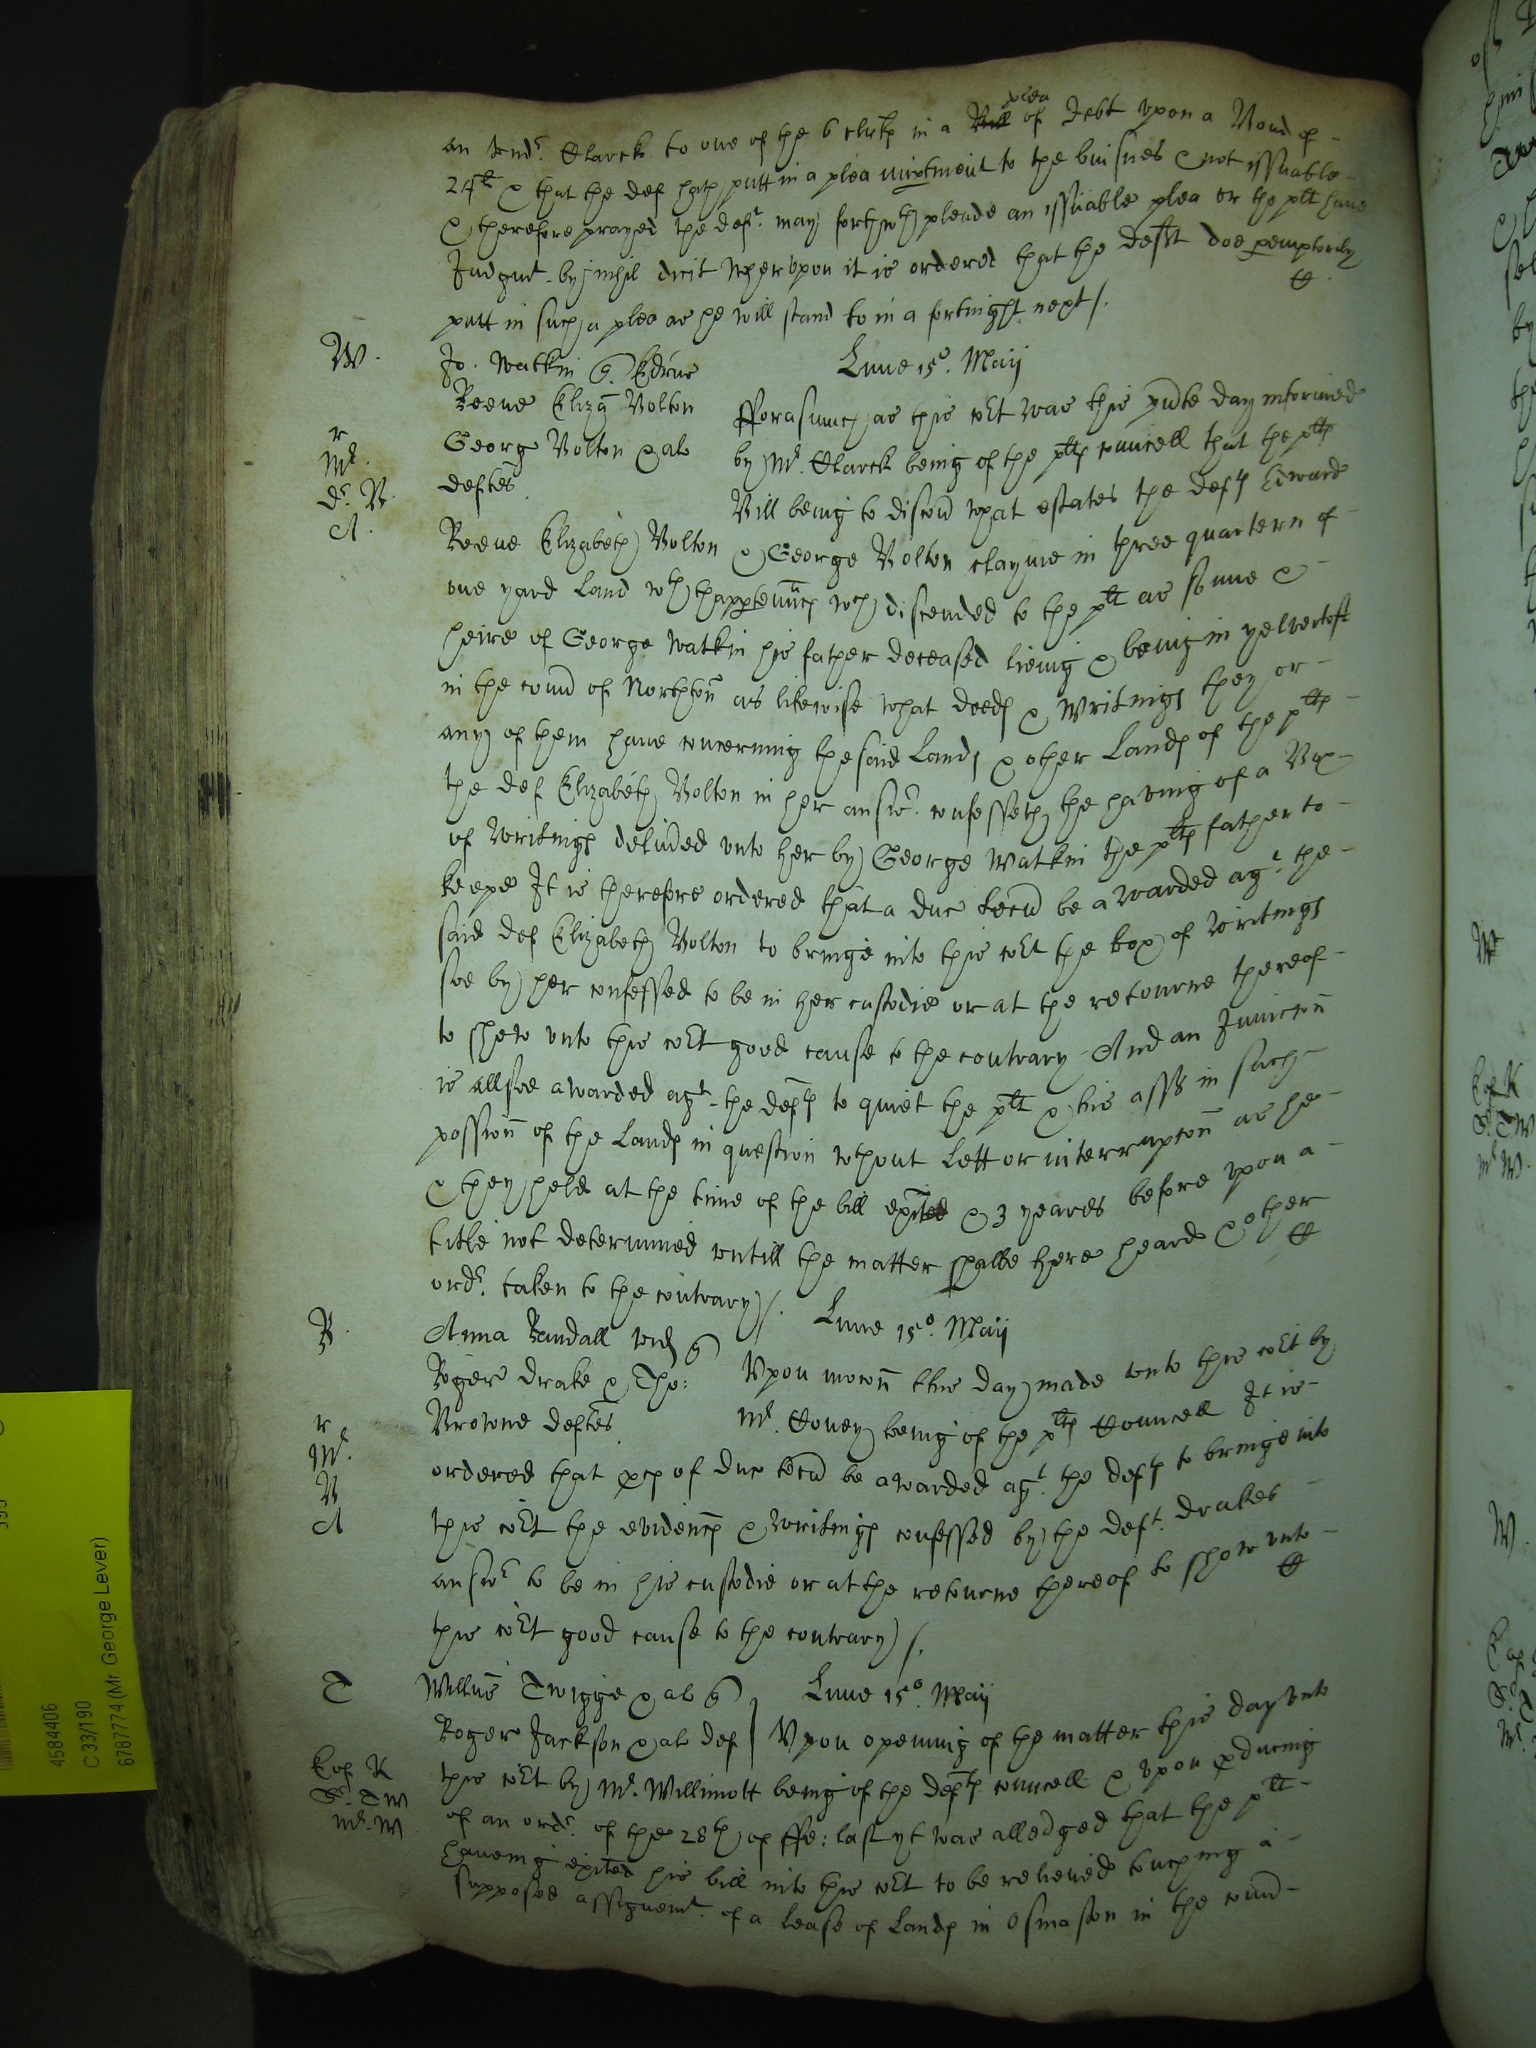 an vndr. Clarck to one of the 6 clerkes in a Bill plea of Debt vpon a Bond of
24li & that the def hath putt in a plea to the buisnes & not issuable
& therefore prayed the deft. may forthwth pleade an issuable plea or the plt haue
Judgmt. by nihil dicit Wherevpon it is ordered that the defts doe peremptorily
putt in such a plea as he will stand to in a fortnight next /.
W. Jo. Watkin q. Edrus Lune 15o. Maij
Reeue Eliza Bolton fforasmuch as this cort was this pnte day informed
r George Bolton & als by Mr. Clarck being of the plts councell that the plts
Mr. deftes. Bill being to discou what estates the defts Edward
dr. B.
A. Reeue Elizabeth Bolton & George Bolton clayme in three quartern of
one yard Land wth thappertennces wch discended to the plt as sonne &
heire of George Watkin his father deceased lieing & being in yelvertoft
in the count of Northton as likewise what deeds & Writings they or
any of them haue concerning the said Lands & other Lands of the plts
the def Elizabeth Bolton in her answr. confesseth the having of a Box
of Writings deliued vnto her by George Watkin the plts father to
keepe It is therefore ordered that a duc tecu be awarded agt. the
said def Elizabeth Bolton to bringe into this cort the box of Writings
soe by her confessed to be in her custodie or at the retourne thereof
to shew vnto this cort good cause to the contrary And an Iniunction
is allsoe awarded agt. the defts to quiet the plt & his asss in such
possion of the Lands in question wthout lett or interruption as he
& they held at the time of the bill exited & 3 yeares before vpon a
title not determined vntill the matter shalbe here heard & other
ordr. taken to the contrary /.
R. Anna Randall wid q Lune 15o. Maij
Roger Drake & Tho: Vpon mocon this day made vnto this cort by
r Browne deftes Mr. Covey being of the plts Councell It is
Mr. ordered that pces of duc tecu be awarded agt. the defts to bringe into
B
A this cort the evidences & Writings confessed by the deft. drakes
answr to be in his custodie or at the retourne thereof to shew vnto
this cort good cause to the contrary /.
T Willus Twigge & als q Lune 15o. Maij
Roger Jackson & als def Vpon opening of the matter this day vnto
Cop K this cort by Mr. Willimott being of the defts councell & vpon pducing
Sr. TW of an ordr. of the 28th of ffe: last yt was alledged that the plt
Mr. W haueing exited his bill into this cort to be relieued touching a
supposed assignemt. of a lease of Lands in Osmaston in the count
4584406
C 33/190
6787774 (Mr. George Lever)